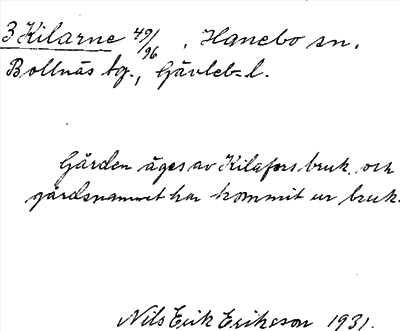 3 Kilarne 49/96, Hanebo sn.
Bollnäs tg., Gävleb. l.
Gården äges av Kilafors bruk och
gårdsnamnet har kommit ur bruk.
Nils Erik Erikson 1931.